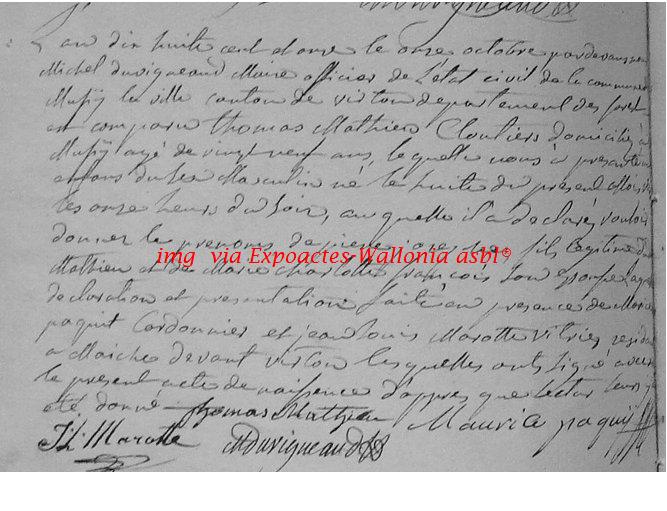 L'an dix huite cent donze le onze octobre pardevant
Michel duvigneaud Maire officier de L'état civil de la commune
Mussÿ la ville canton de virton departement des foret
est comparu thomas Mathieu Cloutiers domicilié à
Mussÿ agé de vingt neuf ans, lequelle nous à presente
enfans du Sex Masculin né le huite du présent Mois
les onze heurs du Soir, au quelle il a declaré vouloir
donner le prenoms de pierre joseph fils legitime
Mathieu et de Marie Charlotte francois Son Epouse
img via Expoactes-Wallonia asbl©
declaration et presentation faite en presence de
paquit Cordonnier et jean louis Marotte vitrier
a Maiche devant virton lesquelles ont Signé avec
le present acte de naissence d'apres que lectur leurs
été donné thomas Mathieu Maurice paquit
JL Marotte MDuvigneaud